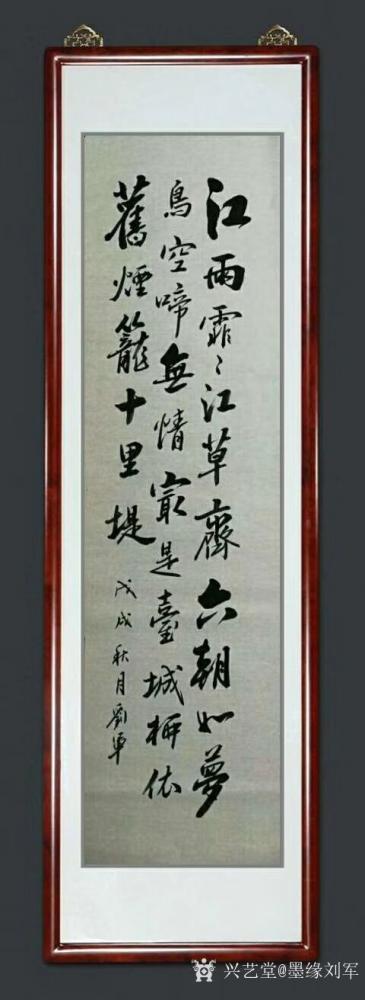 江雨霏〻江草齊六朝如夢
鳥空啼無情寂是臺城柳依
舊煙籠十里堤
戊戌秋月劉軍
兴艺堂@墨缘刘军